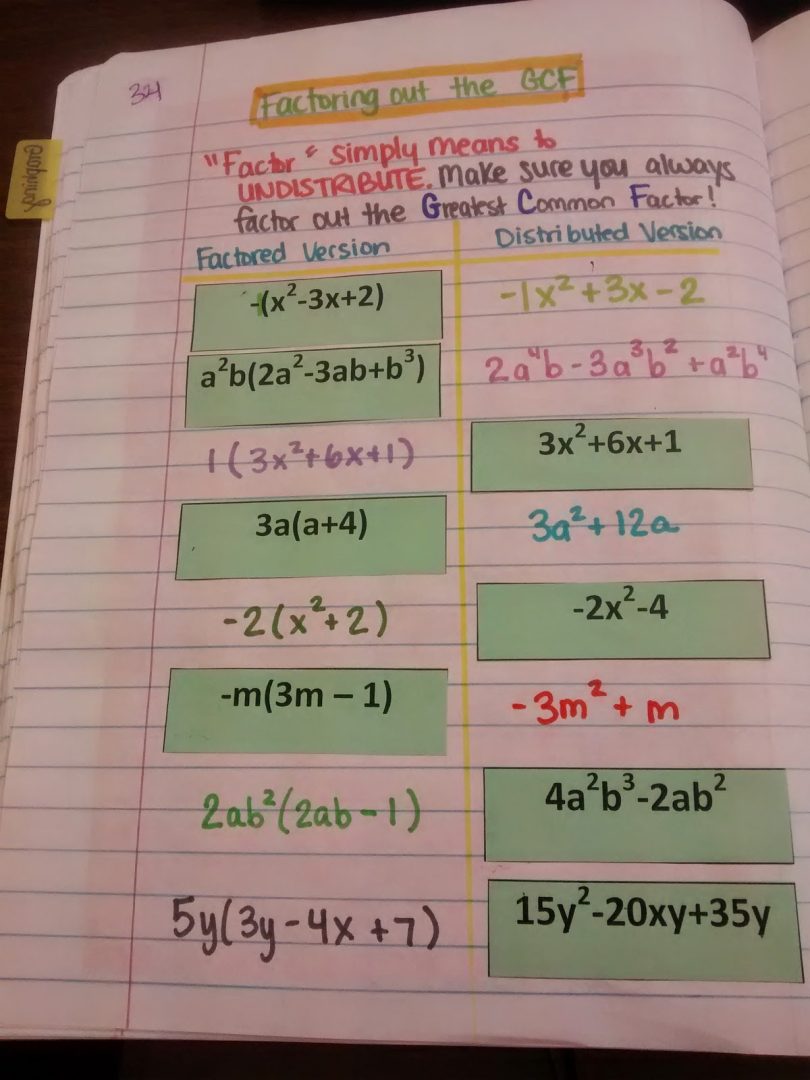 34
Factoring out the GCF
"Factor" simply means to
UNDISTRIBUTE. Make sure you always
factor out the Greatest Common Factor!
Factored Version Distributed Version
-(x²-3x+2) -1x²+3x-2
a²b(2a²-3ab+b³) 2a⁴b-3a³b²+a²b⁴
1(3x²+6x+1) 3x²+6x+1
3a(a+4) 3a²+12a
-2(x²+2) -2x²-4
-m(3m – 1) -3m²+m
2ab²(2ab-1) 4a²b³-2ab²
5y(3y-4x+7) 15y²-20xy+35y